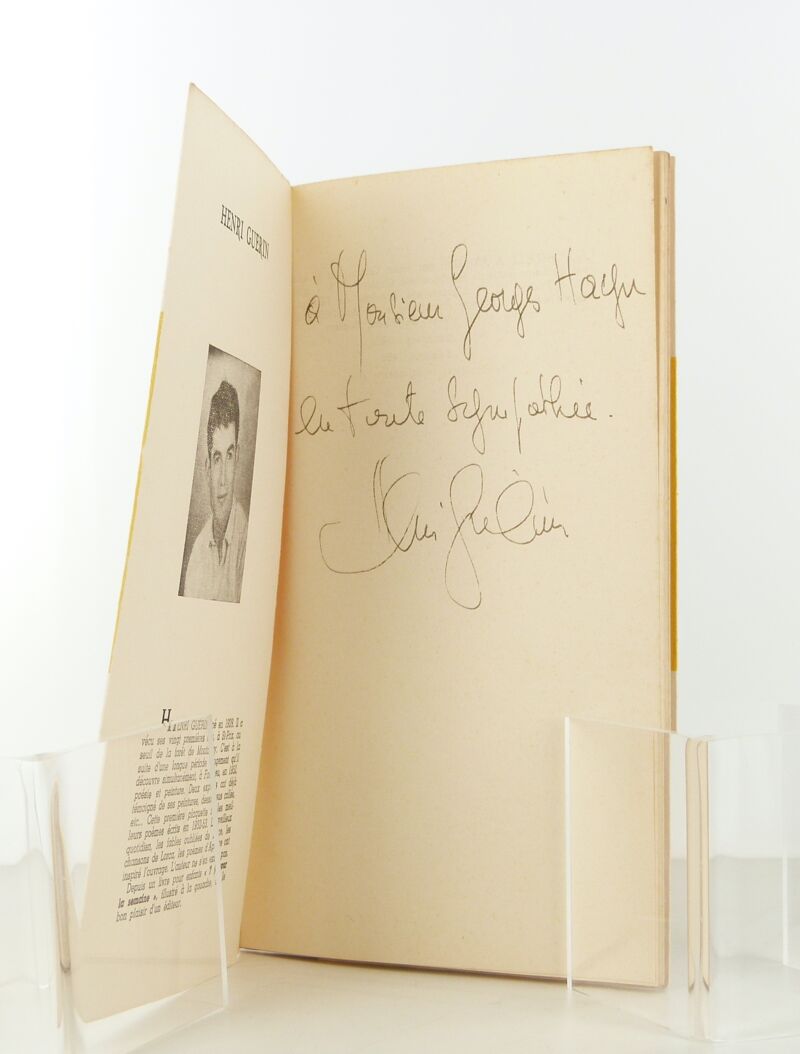 HENRI GUERIN
HENRI GUERIN né en 1929. Il a
vécu ses vingt premières à St-Prix, au
seuil de la forêt de Montm cy. C'est à la
suite d'une longue période qu'il
découvre simultanément, à en 1951,
poésie et peinture. Deux exp ont déjà
témoigné de ses peintures,
etc... Cette première plaquette les meil-
leurs poèmes écrits en 1952-53. L veilleux
quotidien, les fables oubliées les
chansons de Lorca, les poèmes d'Ap ont
inspiré l'ouvrage. L'auteur ne s'en pas.
Depuis un livre pour enfants «
la semaine », illustré à la gouache, le
bon plaisir d'un éditeur.
à Monsieur Georges Hacqu
en toute sympathie.
Henri Guérin